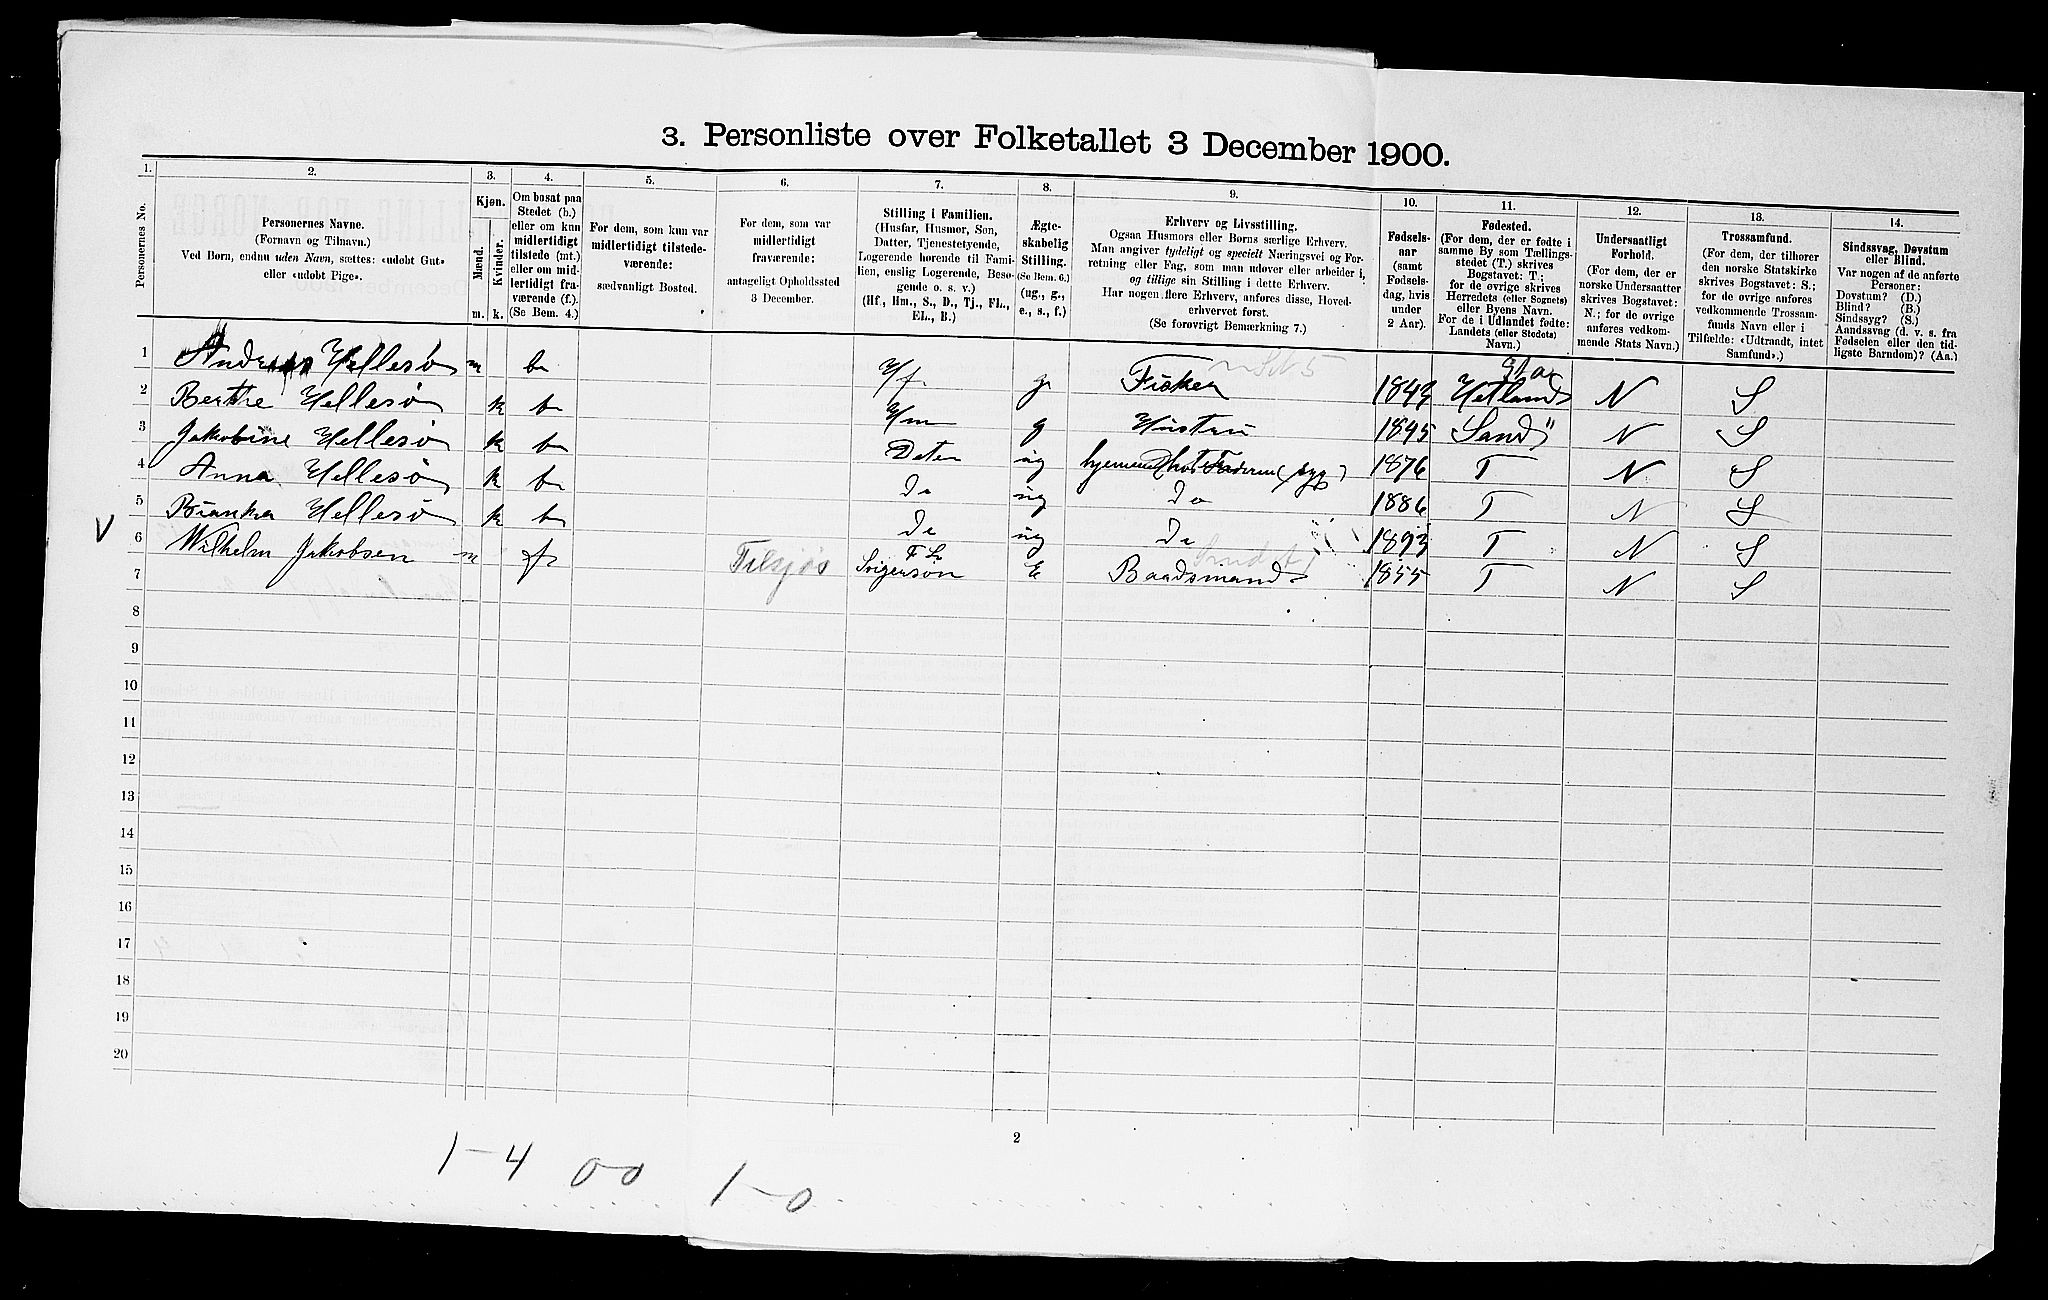 3. Personliste over Folketallet 3 December 1900.
1. 2. 3. 4. 5. 6. 7. 8. 9. 10. 11. 12. 13. 14.
Personernes No.
Personernes Navne.
(Fornavn og Tilnavn.)
Ved Børn, endnu uden Navn, sættes: «udøbt Gut»
eller «udøbt Pige».
Kjøn.
Mænd.
Kvinder.
m. k.
Om bosat paa
Stedet (b.)
eller om kun
midlertidigt
tilstede (mt.)
eller om mid-
lertidigt fra-
værende (f.).
(Se Bem. 4.)
For dem, som kun var
midlertidigt tilstede-
værende:
sædvanligt Bosted.
For dem, som var
midlertidigt
fraværende:
antageligt Opholdssted
3 December.
Stilling i Familien.
(Husfar, Husmor, Søn,
Datter, Tjenestetyende,
Logerende hørende til Fami-
lien, enslig Logerende, Besø-
gende o. s. v.)
(Hf., Hm., S., D., Tj., FL.,
EL., B.)
Ægte-
skabelig
Stilling.
(Se Bem. 6.)
(ug., g.,
e., s., f.)
Erhverv og Livsstilling.
Ogsaa Husmors eller Børns særlige Erhverv.
Man angiver tydeligt og specielt Næringsvei og For-
retning eller Fag, som man udøver eller arbeider i,
og tillige sin Stilling i dette Erhverv.
Har nogen flere Erhverv, anføres disse, Hoved-
erhvervet først.
(Se forøvrigt Bemærkning 7.)
Fødsels-
aar
(samt
Fødsels-
dag, hvis
under
2 Aar).
Fødested.
(For dem, der er fødte i
samme By som Tællings-
stedet (T.) skrives
Bogstavet: T.;
for de øvrige skrives
Herredets (eller Sognets)
eller Byens Navn.
For de i Udlandet fødte:
Landets (eller Stedets)
Navn.)
Undersaatligt
Forhold.
(For dem, der er
norske Undersaatter
skrives Bogstavet:
N.; for de øvrige
anføres vedkom-
mende Stats Navn.)
Trossamfund.
(For dem, der tilhører
den norske Statskirke
skrives Bogstavet: S.;
for de øvrige anføres
vedkommende Trossam-
funds Navn eller i
Tilfælde: «Udtraadt, intet
Samfund».)
Sindssvag, Døvstum
eller Blind.
Var nogen af de anførte
Personer:
Døvstum? (D.)
Blind? (B.)
Sindssyg? (S.)
Aandssvag (d. v. s. fra
Fødselen eller den tid-
ligste Barndom)? (Aa.)
1 Andreas Hellesø m b Hf g Fisker 1849 Hetland N S
2 Berthe Hellesø k b Hm g Hustru 1845 Sand N S
3 Jakobine Hellesø k b Dater ug hjemme hos Faderen (syg) 1876 T N S
4 Anna Hellesø k b Do ug Do 1886 T N S
5 Bianka Hellesø k b Do ug Do 1893 T N S
V
6 Wilhelm Jakobsen m f Tilsjøs FL Svigersøn E Baadsmand 1855 T N S
7
8
9
10
11
12
13
14
15
16
17
18
19
20
2
1-4 0-0 1-0